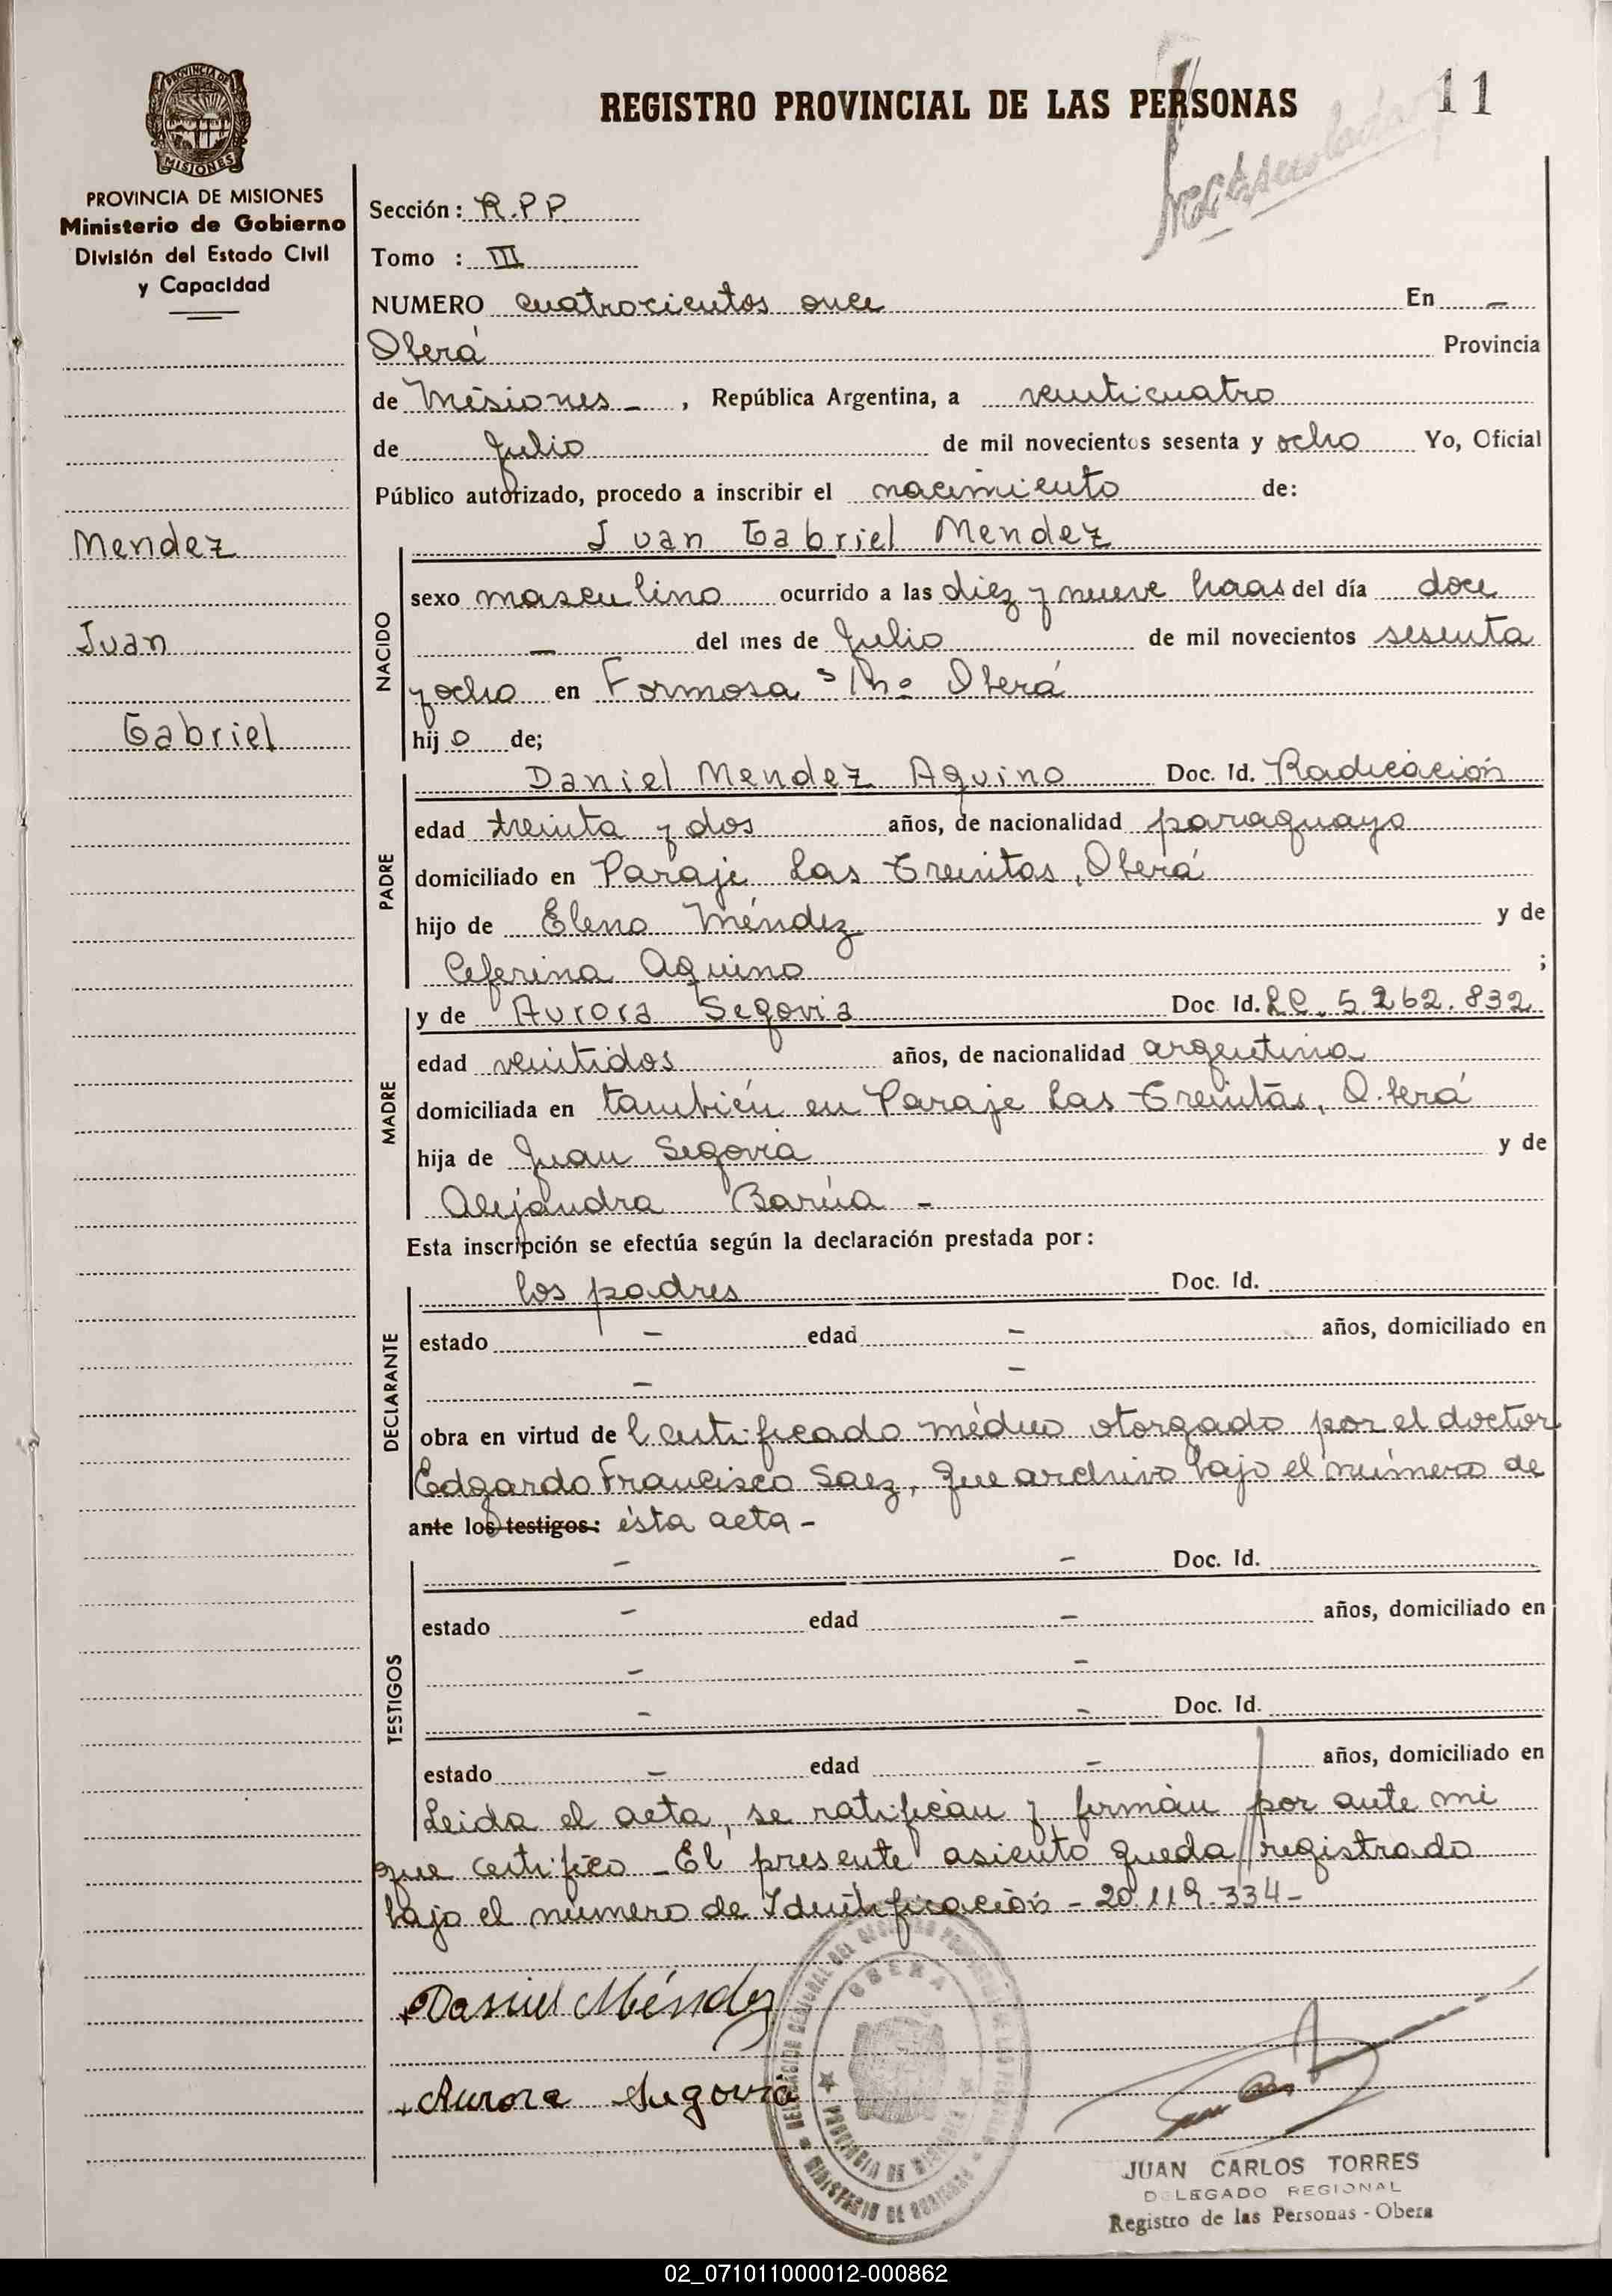 REGISTRO PROVINCIAL DE LAS PERSONAS
11
PROVINCIA DE MISIONES
Ministerio de Gobierno
División del Estado Civil
y Capacidad
Mendez
Juan
Gabriel
Sección: R.P.P.
Tomo : III
NUMERO cuatrocientos once En –
Oberá Provincia
de Misiones – , República Argentina, a veinticuatro
de Julio de mil novecientos sesenta y ocho Yo, Oficial
Público autorizado, procedo a inscribir el nacimiento de:
Juan Gabriel Mendez
NACIDO
sexo masculino ocurrido a las diez y nueve horas del día doce
– del mes de Julio de mil novecientos sesenta
y ocho en Formosa Oberá
hijo de;
PADRE
Daniel Mendez Aquino Doc. Id. Radicación
edad treinta y dos años, de nacionalidad paraguayo
domiciliado en Paraje Las Treinitas, Oberá
hijo de Eleno Méndez y de
Ceferina Aquino ;
MADRE
y de Aurora Segovia Doc. Id. LC. 5.262.832
edad veintidos años, de nacionalidad argentina
domiciliada en también en Paraje Las Treinitas, Oberá
hija de Juan Segovia y de
Alejandra Barúa –
Esta inscripción se efectúa según la declaración prestada por:
DECLARANTE
los padres Doc. Id.
estado – edad – años, domiciliado en
– –
obra en virtud de certificado médico otorgado por el doctor
Edgardo Francisco Saez, que archivo bajo el número de
ante los testigos: ésta acta –
TESTIGOS
– – Doc. Id.
estado – edad – años, domiciliado en
– –
– – Doc. Id.
estado – edad – años, domiciliado en
Leida el acta, se ratifican y firman por ante mi
que certifico – El presente asiento queda registrado
bajo el número de Identificación – 20.119.334 –
Daniel Méndez
Aurora Segovia
OBERA
PROVINCIA DE MISIONES
MINISTERIO DE GOBIERNO
JUAN CARLOS TORRES
DELEGADO REGIONAL
Registro de las Personas - Obera
02_071011000012-000862